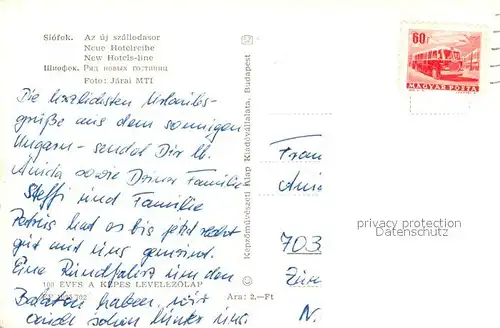 Siófok. Az új szállodasor
Neue Hotelreihe
New Hotels-line
Шиофок. Ряд новых гостиниц
Foto: Járai MTI
Die herzlichsten Urlaubs-
grüße aus dem sonnigen
Ungarn sendet Dir lb.
Anida sowie Deiner Familie
Steffi und Familie
Petrus hat es bis jetzt recht
gut mit uns gemeint.
Eine Rundfahrt um den
Balaton haben wir
auch schon hinter uns.
100 ÉVES A KÉPES LEVELEZŐLAP
Ára: 2.–Ft
Képzőművészeti Alap Kiadóvállalata, Budapest
60f
MAGYAR POSTA
703
N.
privacy protection
Datenschutz